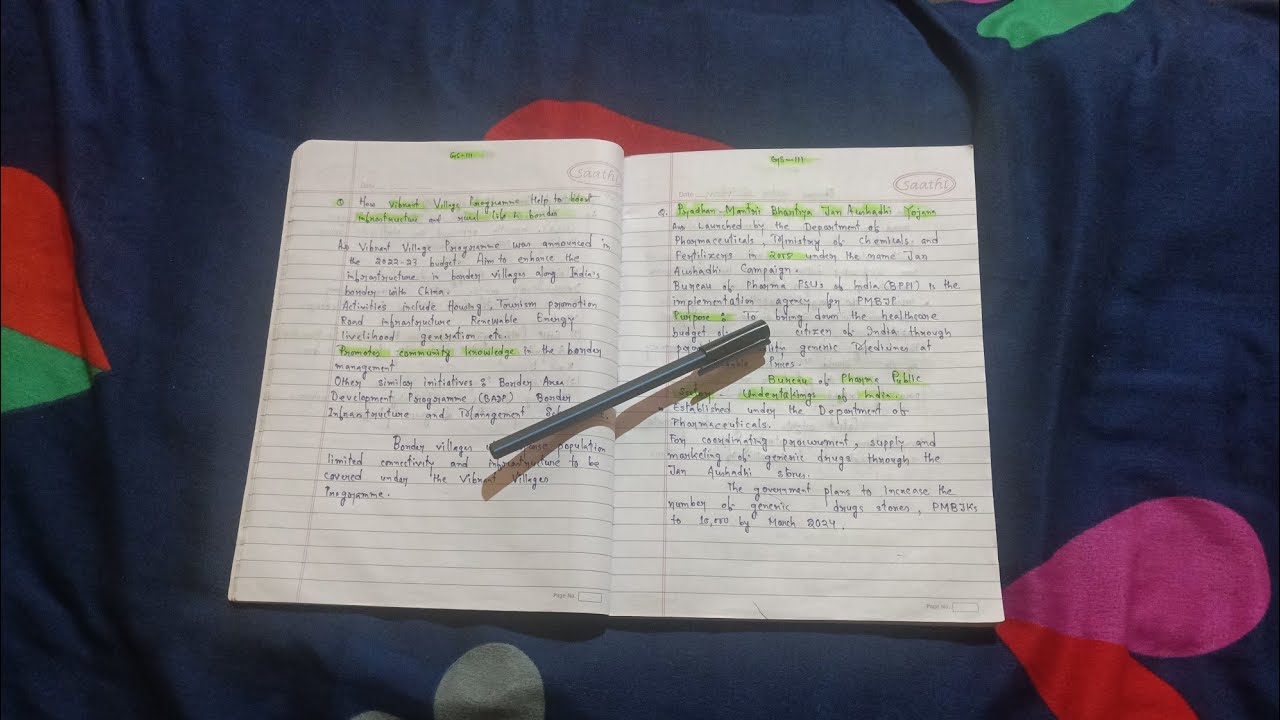 GS-III
saathi
Date
Q How Vibrant Village Programme Help to boost
infrastructure and rural life in border
Ans Vibrant Village Programme was announced in
the 2022-23 budget. Aim to enhance the
infrastructure in border villages along India's
border with China.
Activities include Housing, Tourism promotion
Road infrastructure Renewable Energy
livelihood generation etc.
Promotes community knowledge in the border
management
Other similar initiatives : Border Area
Development Programme (BADP) Border
Infrastructure and Management
Border villages population
limited connectivity and infrastructure to be
covered under the Vibrant Villages
Programme.
Page No.
GS-III
saathi
Date
Q. Pradhan Mantri Bhartiya Jan Aushadhi Yojana
Ans Launched by the Department of
Pharmaceuticals, Ministry of Chemicals and
Fertilizers in under the name Jan
Aushadhi Campaign.
Bureau of Pharma PSUs of India (BPPI) is the
implementation agency for PMBJP
Purpose : To bring down the healthcare
budget of citizen of India through
generic Medicines at
Prices.
Bureau of Pharma Public
Undertakings of India.
Established under the Department of
Pharmaceuticals.
For coordinating procurement, supply and
marketing of generic drugs through the
Jan Aushadhi stores.
The government plans to increase the
number of generic drugs stores, PMBJKs
to 10,000 by March 2024.
Page No.